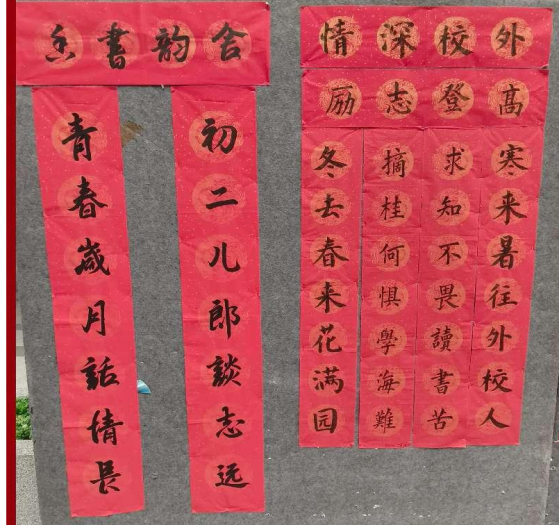 舍韵書香
初二儿郎談志远
青春歲月話情長
外校深情
髙登志励
寒来暑往外校人
求知不畏讀書苦
摘桂何惧學海難
冬去春来花满园